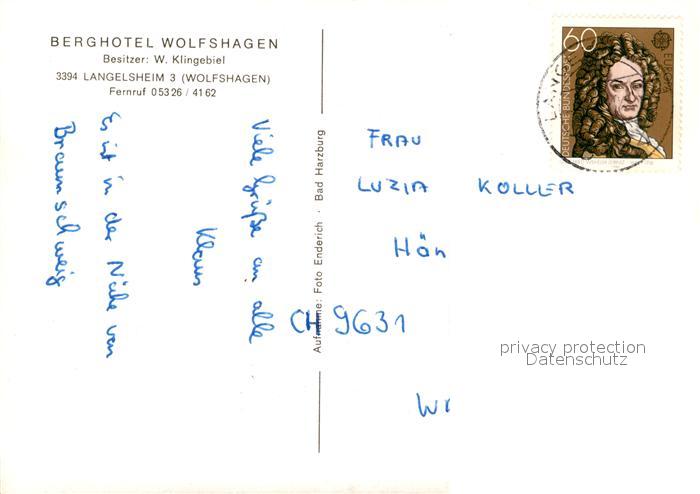 BERGHOTEL WOLFSHAGEN
Besitzer: W. Klingebiel
3394 LANGELSHEIM 3 (WOLFSHAGEN)
Fernruf 05326 / 4162
Viele Grüße an alle
Klaus
Es ist in der Nähe von
Braunschweig
Aufnahme: Foto Enderich · Bad Harzburg
60
EUROPA
DEUTSCHE BUNDESPOST
FRAU
LUZIA KOLLER
Hän
CH 9631
privacy protection
Datenschutz